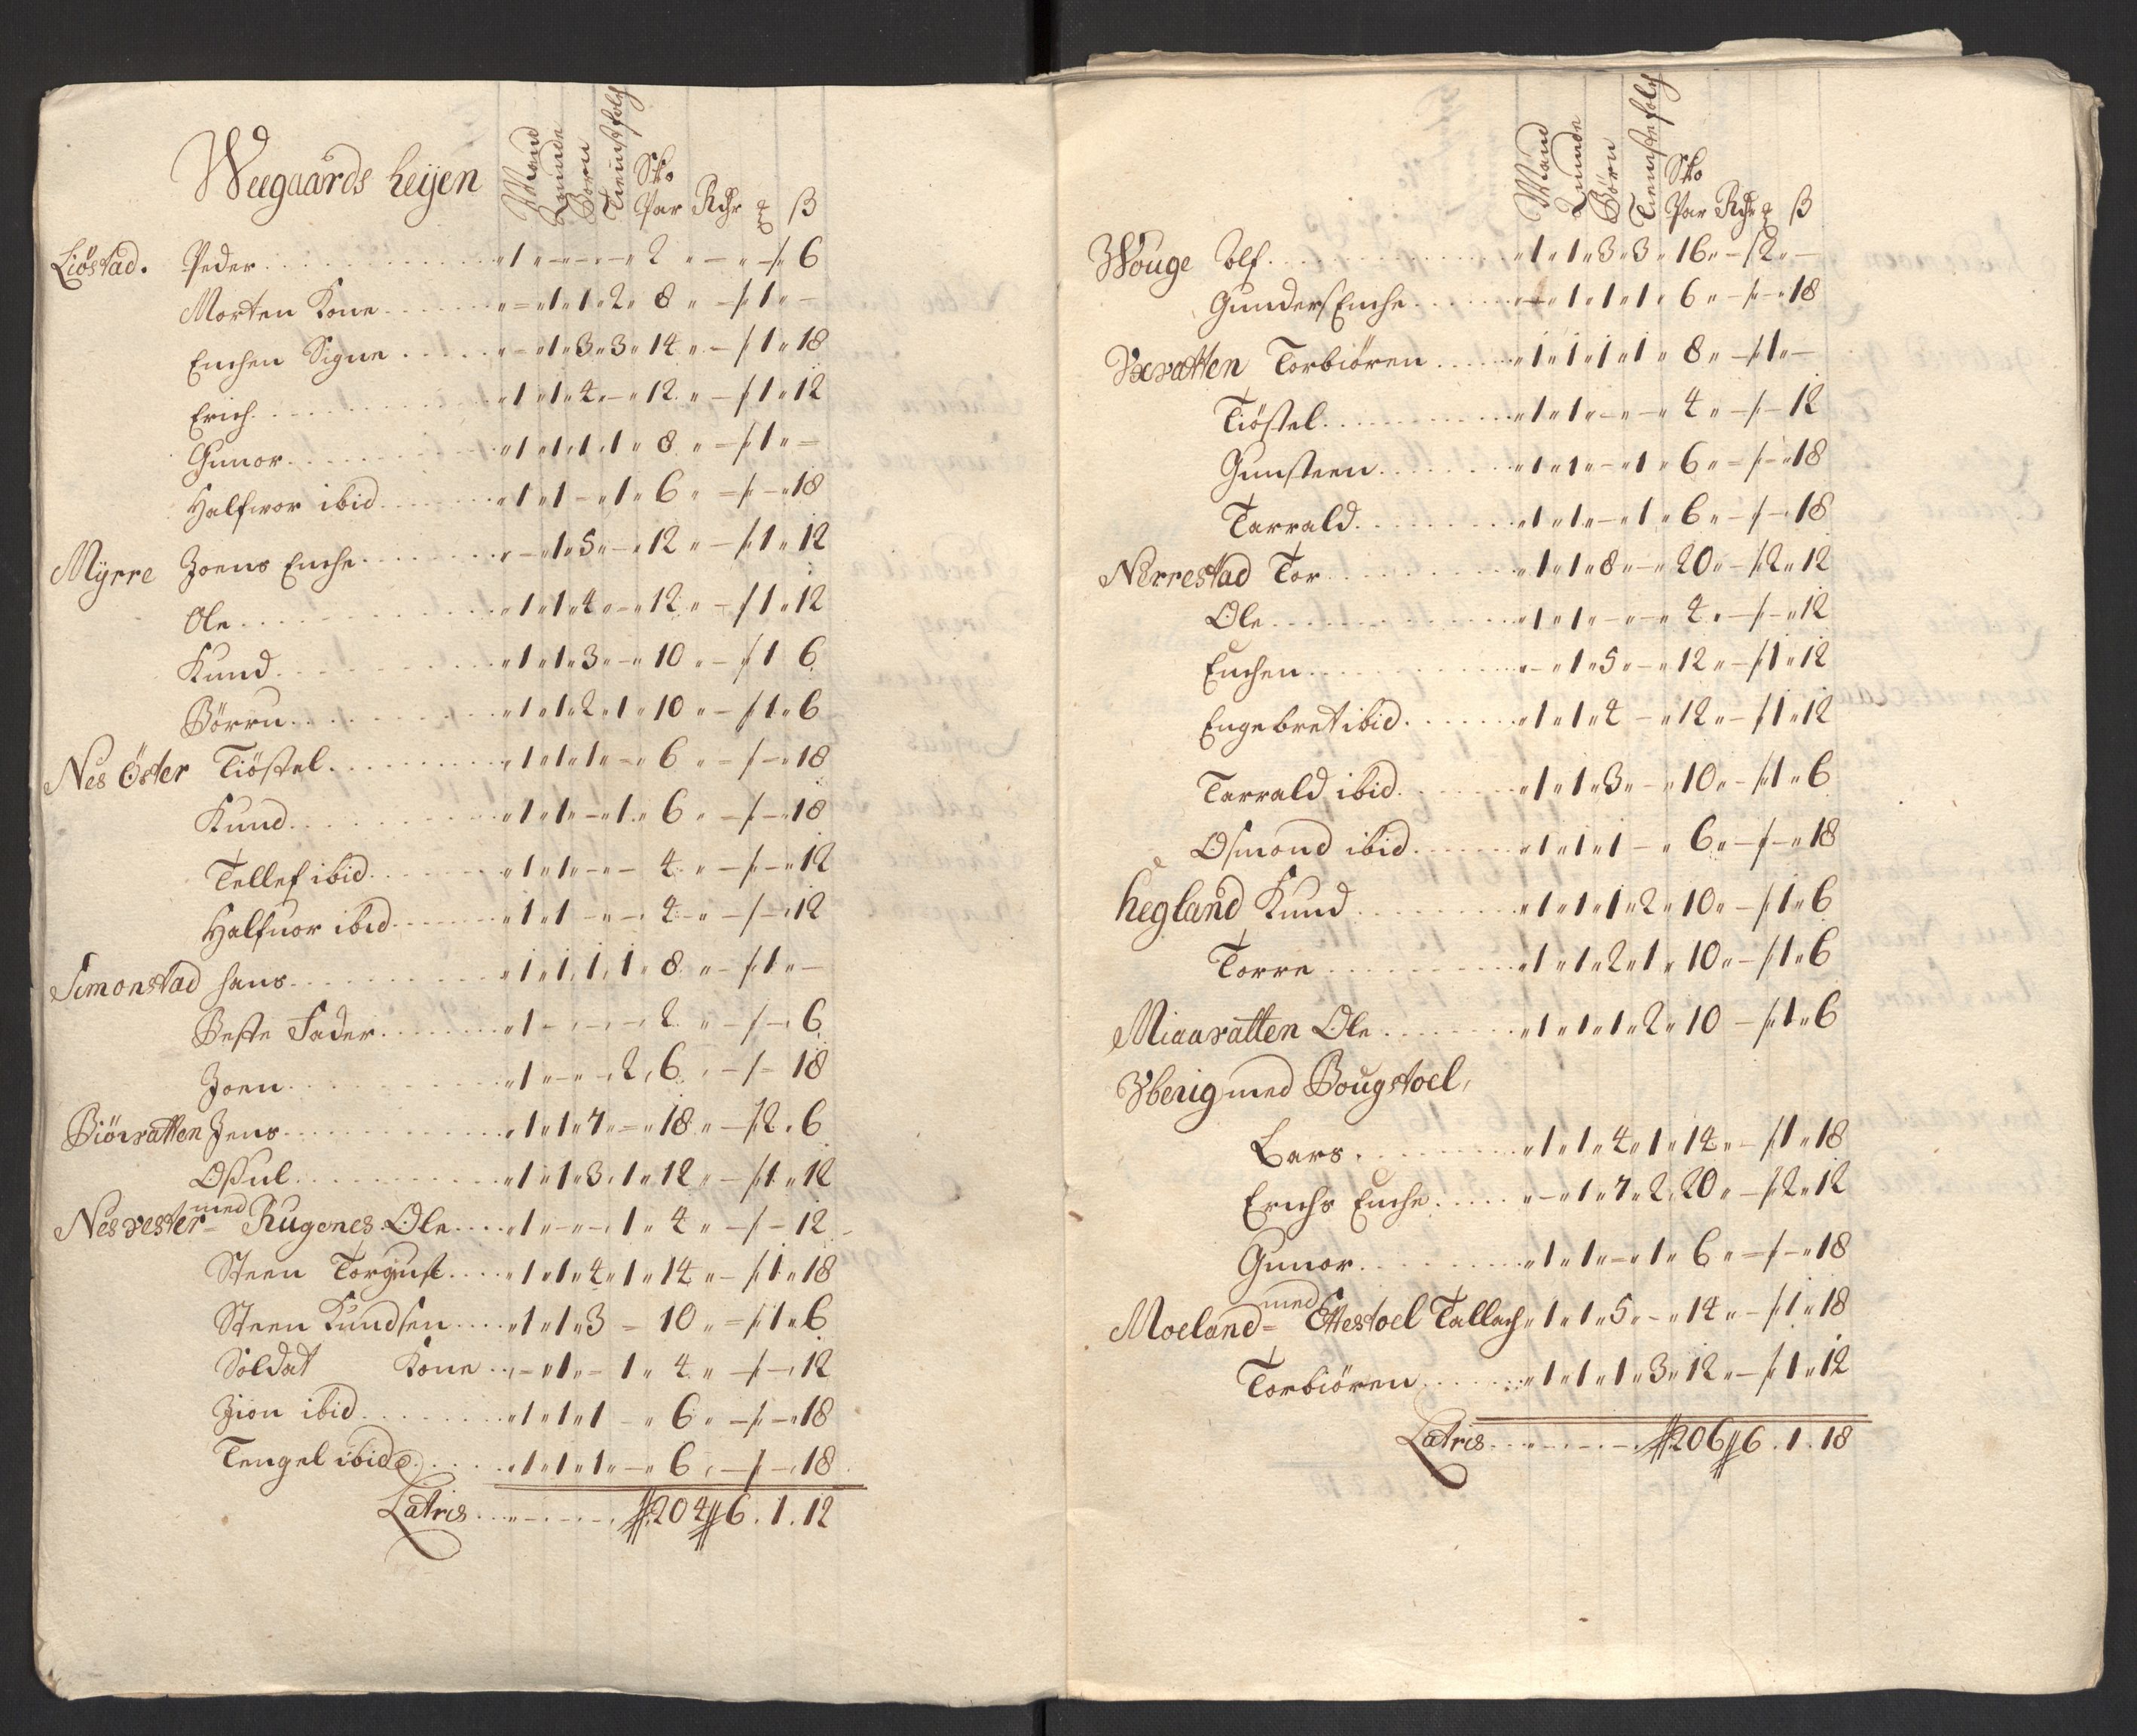 Weegaards heijen Mand Quinde Börn Tieniste folch Sko Par Rdr ß
Liöstad. Peder 1 - - - 2 - - 6
Morten Kone - 1 1 2 8 - 1 -
Enchen Signe - 1 3 3 14 - 1 18
Erich 1 1 4 - 12 - 1 12
Gunor 1 1 1 1 8 - 1 -
Halfwor ibid 1 1 - 1 6 - - 18
Myrre Joens Enche - 1 5 - 12 - 1 12
Ole 1 1 4 - 12 - 1 12
Knud 1 1 3 - 10 - 1 6
Börru 1 1 2 1 10 - 1 6
Nes Öster Tiöstel 1 1 1 - 6 - - 18
Knud 1 1 - 1 6 - - 18
Tellef ibid 1 1 - - 4 - - 12
Halfuor ibid 1 1 - - 4 - - 12
Simonstad hans 1 1 1 1 8 - 1 -
Beste Fader 1 - - - 2 - - 6
Joen 1 - - 2 6 - - 18
Biörvatten Jens 1 1 7 - 18 - 2 6
Ossul 1 1 3 1 12 - 1 12
Nes vester med Rugenes Ole 1 - - 1 4 - - 12
Steen Torgust 1 1 4 1 14 - 1 18
Steen Knudsen 1 1 3 - 10 - 1 6
Soldat Kone - 1 - 1 4 - - 12
Jion ibid 1 1 1 - 6 - - 18
Tengel ibid 1 1 1 - 6 - - 18
Latris 204 6 . 1 . 12
Mand Quinde Börn Tieniste folch Sko Par Rdr ß
Wouge Olf 1 1 3 3 16 - 2 -
Gunders Enche - 1 1 1 6 - - 18
Vxvatten Torbiören 1 1 1 1 8 - 1 -
Tiöstel 1 1 - - 4 - - 12
Gunsteen 1 1 - 1 6 - - 18
Tarrald 1 1 - 1 6 - - 18
Nerrestad Tor 1 1 8 - 20 - 2 12
Ole 1 1 - - 4 - - 12
Enchen - 1 5 - 12 - 1 12
Engebret ibid 1 1 4 - 12 - 1 12
Tarrald ibid 1 1 3 - 10 - 1 6
Osmond ibid 1 1 1 - 6 - - 18
hegland Knud 1 1 1 2 10 - 1 6
Torre 1 1 2 1 10 - 1 6
Miaavatten Ole 1 1 1 2 10 - 1 6
Yberig med Bougstoel,
Lars 1 1 4 1 14 - 1 18
Erichs Enche - 1 7 2 20 - 2 12
Gunor 1 1 - 1 6 - - 18
Moeland med Ettestoel Tallach 1 1 5 - 14 - 1 18
Torbiören 1 1 1 3 12 - 1 12
Latris 206 6 . 1 . 18